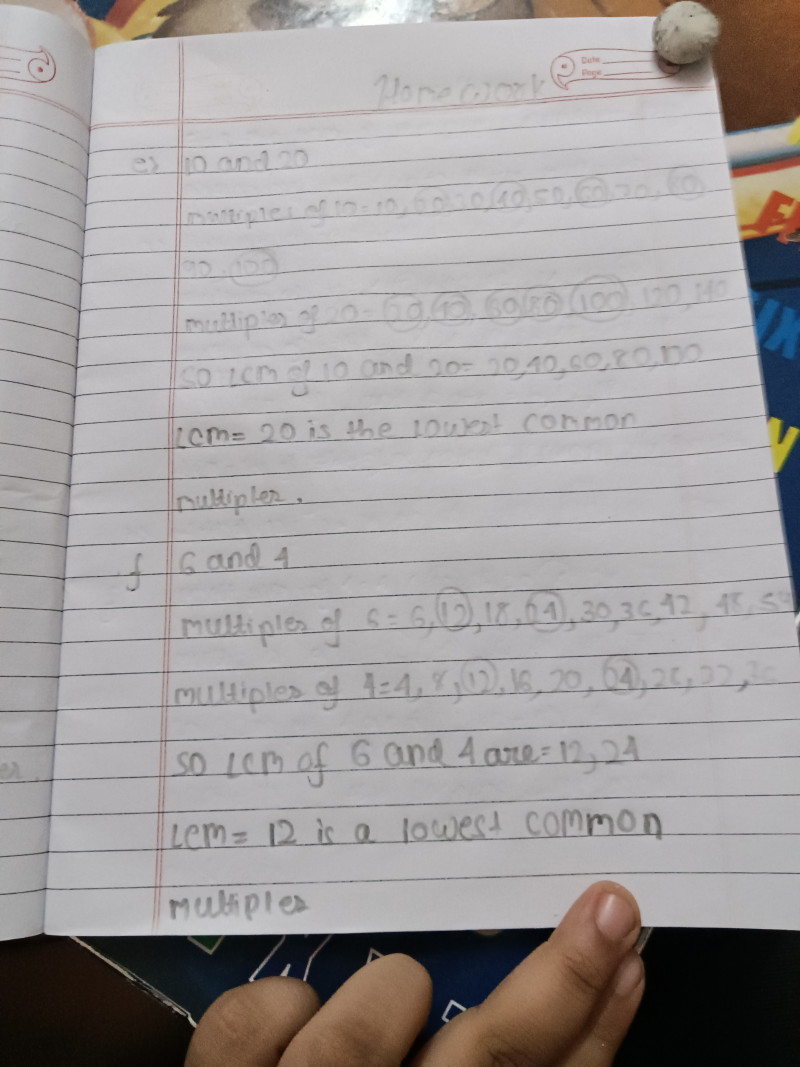 Date
Page
Homework
e) 10 and 20
multiples of 10 = 10, 20, 30, 40, 50, 60, 70, 80
90, 100
multiples of 20 = 20, 40, 60, 80, 100, 120, 140
so LCM of 10 and 20 = 20, 40, 60, 80, 100
LCM = 20 is the lowest common
multiples.
f 6 and 4
multiples of 6 = 6, 12, 18, 24, 30, 36, 42, 48, 54
multiples of 4 = 4, 8, 12, 16, 20, 24, 28, 32, 36
so LCM of 6 and 4 are = 12, 24
LCM = 12 is a lowest common
multiples